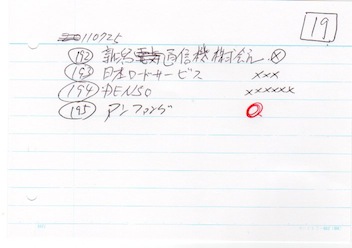 19
110725
192 新潟通信機株式会社 ×
193 日本ロードサービス ×××
194 DENSO ××××××
195 アンフィング